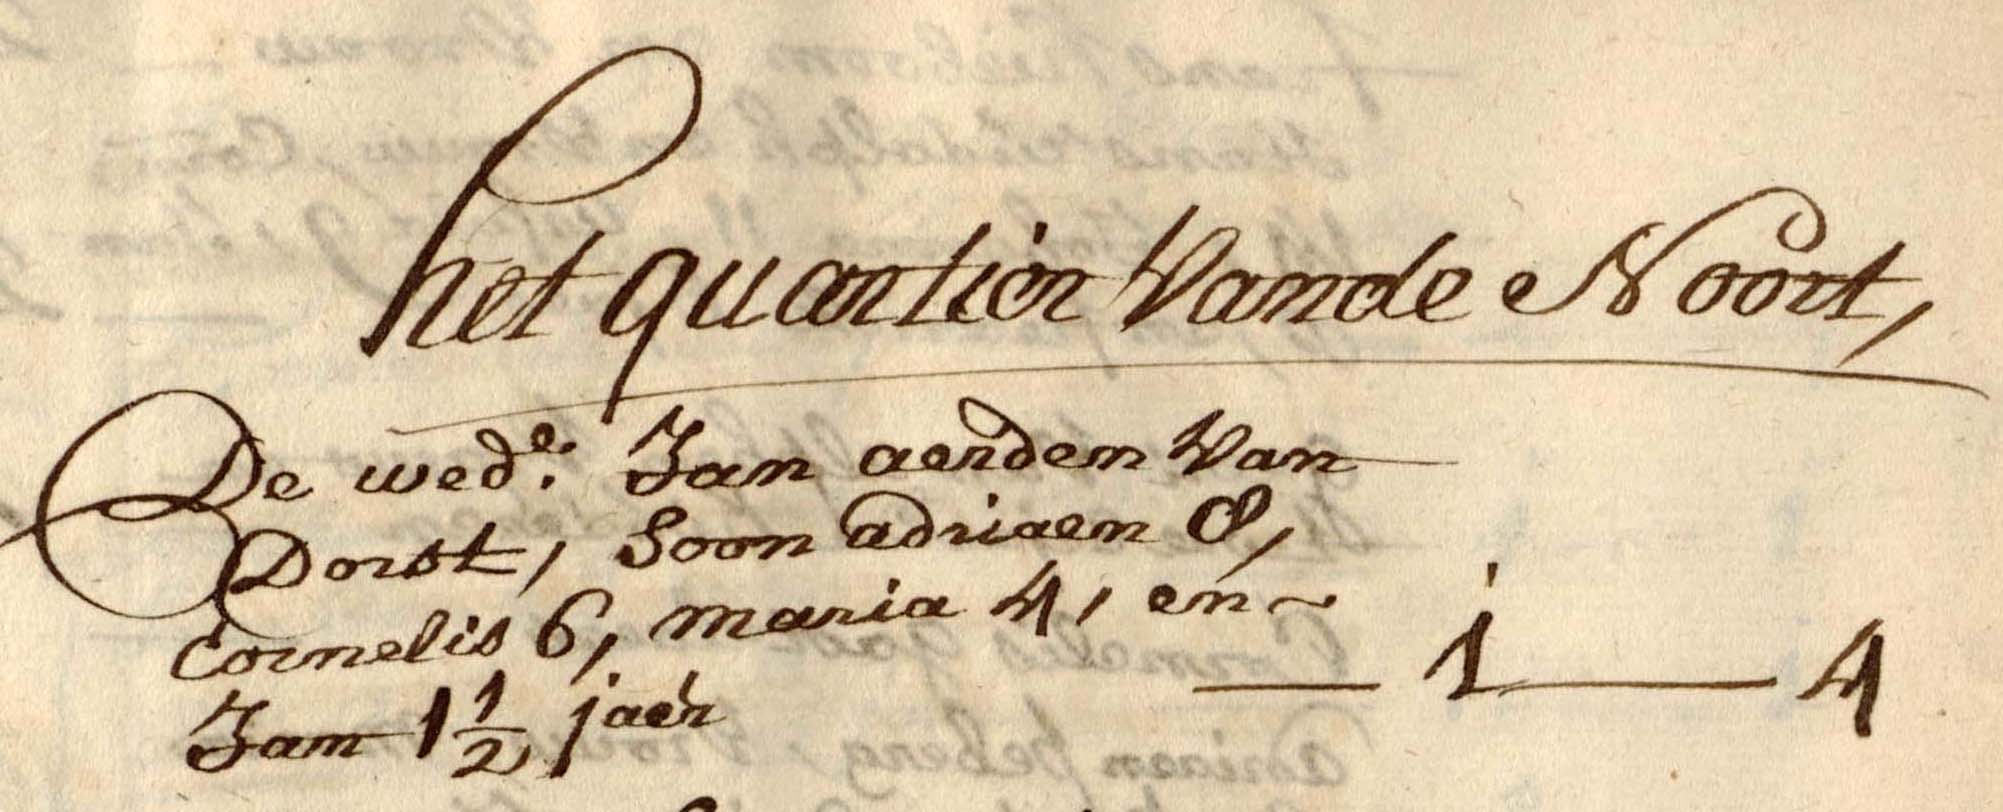 het quartier Vande Noort,
De wed.e Jan aerden Van
Dorst, Soon adriaen 8,
Cornelis 6, maria 4, en
Jan 1 1/2 jaer — 1 — 4